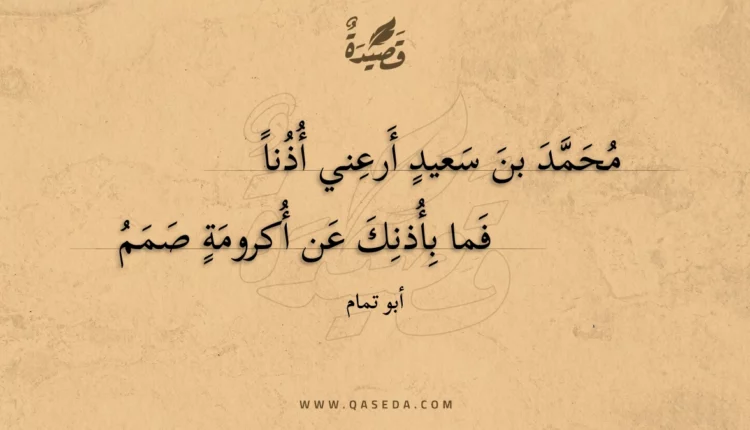 قَصِيْدَةٌ
مُحَمَّدَ بنَ سَعيدٍ أَرعِني أُذُناً
فَما بِأُذنِكَ عَن أُكرومَةٍ صَمَمُ
أبو تمام
WWW.QASEDA.COM